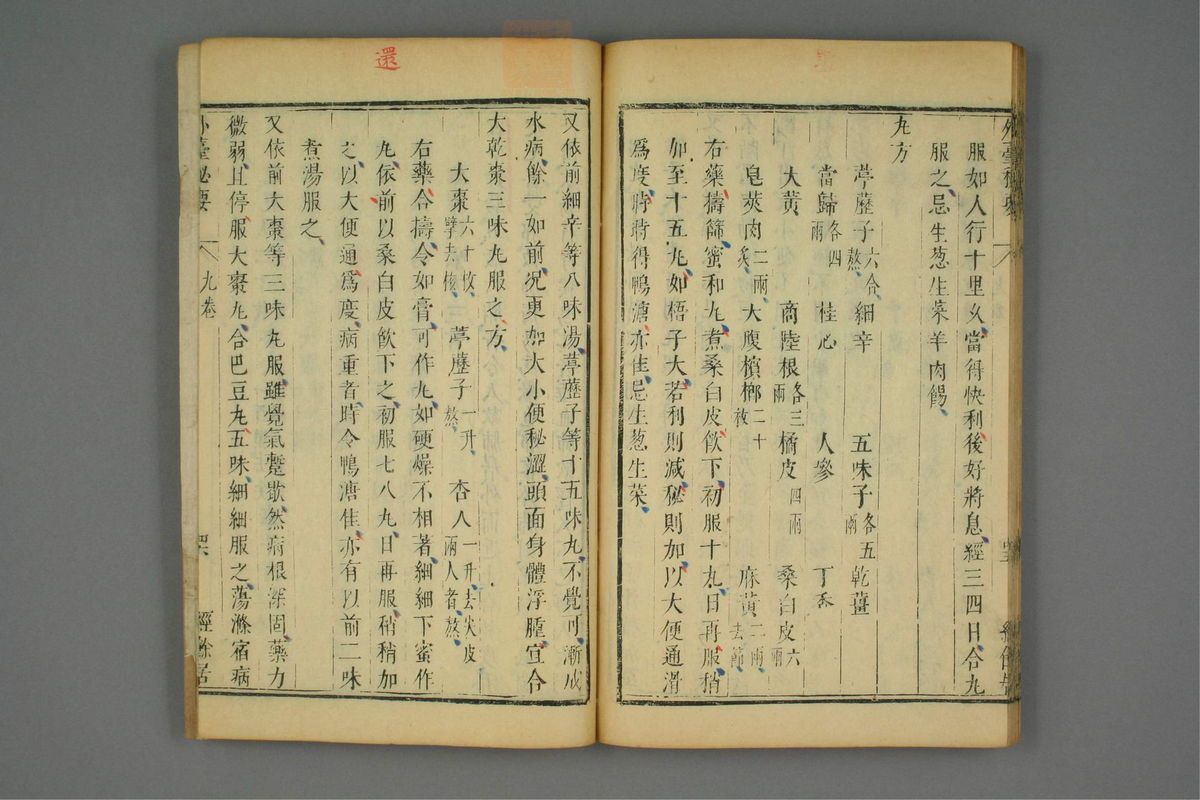 服如人行十里久當得快利後好將息經三四日合丸
服之忌生葱生菜羊肉餳
丸方
葶藶子六合熬 細辛 五味子各五兩 乾薑
當歸各四兩 桂心 人參 丁香
大黃 商陸根各三兩 橘皮四兩 桑白皮六兩
皂莢肉二兩炙 大腹檳榔二十枚 麻黃二兩去節
右藥擣篩蜜和丸煮桑白皮飲下初服十丸日再服稍
加至十五丸如梧子大若利則減秘則加以大便通滑
爲度時時得鴨溏亦佳忌生葱生菜
又依前細辛等八味湯葶藶子等十五味丸不覺可漸成
水病餘一如前况更加大小便秘澀頭面身體浮腫宜合
大乾棗三味丸服之方
大棗六十枚擘去核 葶藶子一升熬 杏人一升去尖皮兩人者熬
右藥合擣令如膏可作丸如硬燥不相著細細下蜜作
丸依前以桑白皮飲下之初服七八丸日再服稍稍加
之以大便通爲度病重者時令鴨溏佳亦有以前二味
煮湯服之
又依前大棗等三味丸服雖覺氣蹔歇然病根深固藥力
微弱且停服大棗丸合巴豆丸五味細細服之蕩滌宿病
外臺秘要 九卷 經餘居
還